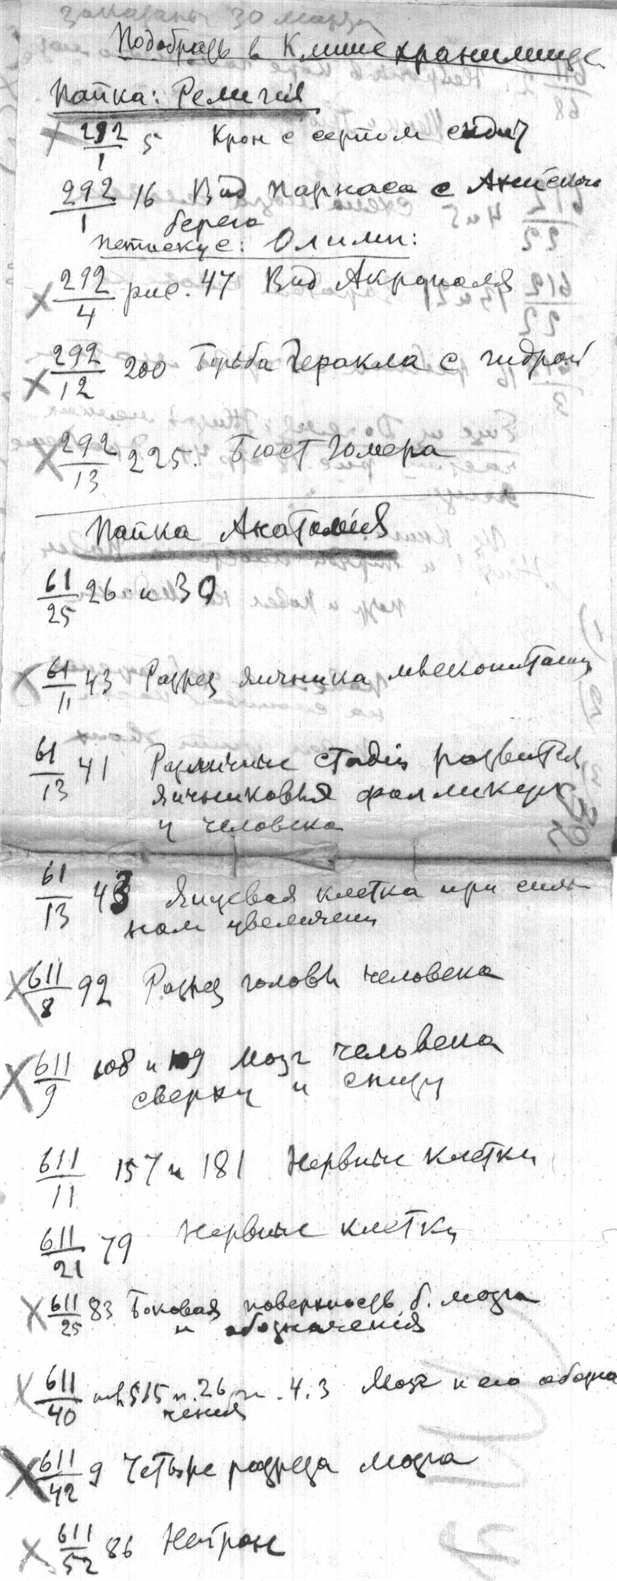 заказаны 30 марта
Подобрать в Клишехранилище
Папка: Религия
× 292/1 5 Крон с серпом сидит
292/1 16 Вид Парнаса с
берега
Петискус: Олимп:
× 292/4 рис. 47 Вид Акрополя
× 292/12 200 Борьба Геракла с гидрой
× 292/13 225. Бюст Гомера
Папка Анатомия
61/25 26 и 30
× 61/11 43 Разрез яичника млекопитающ
61/13 41 Различные стадии развития
яичниковых фолликул
у человека
61/13 43 Яйцевая клетка при силь
ном увеличении
× 611/8 92 Разрез головы человека
× 611/9 108 и 109 Мозг человека
сверху и снизу
611/11 157 и 181 Нервные клетки
611/21 79 Нервные клетки
× 611/25 83 Боковая поверхность б. мозга
и обозначения
× 611/40 515 26 4.3 Мозг и его обозна
чения
× 611/42 9 Четыре разреза мозга
× 611/52 86 Нейрон